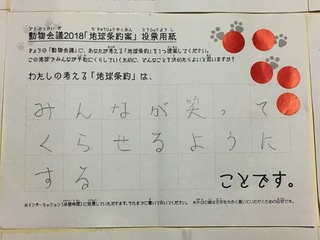 動物会議2018「地球条約案」投票用紙
きょうの「動物会議」に、あなたが考える「地球条約」を1つ提案してください。
この地球でみんなが平和にくらしていくために、どんなことを決めたらよいと思いますか?
わたしの考える「地球条約」は、
みんなが笑って
くらせるように
する
ことです。